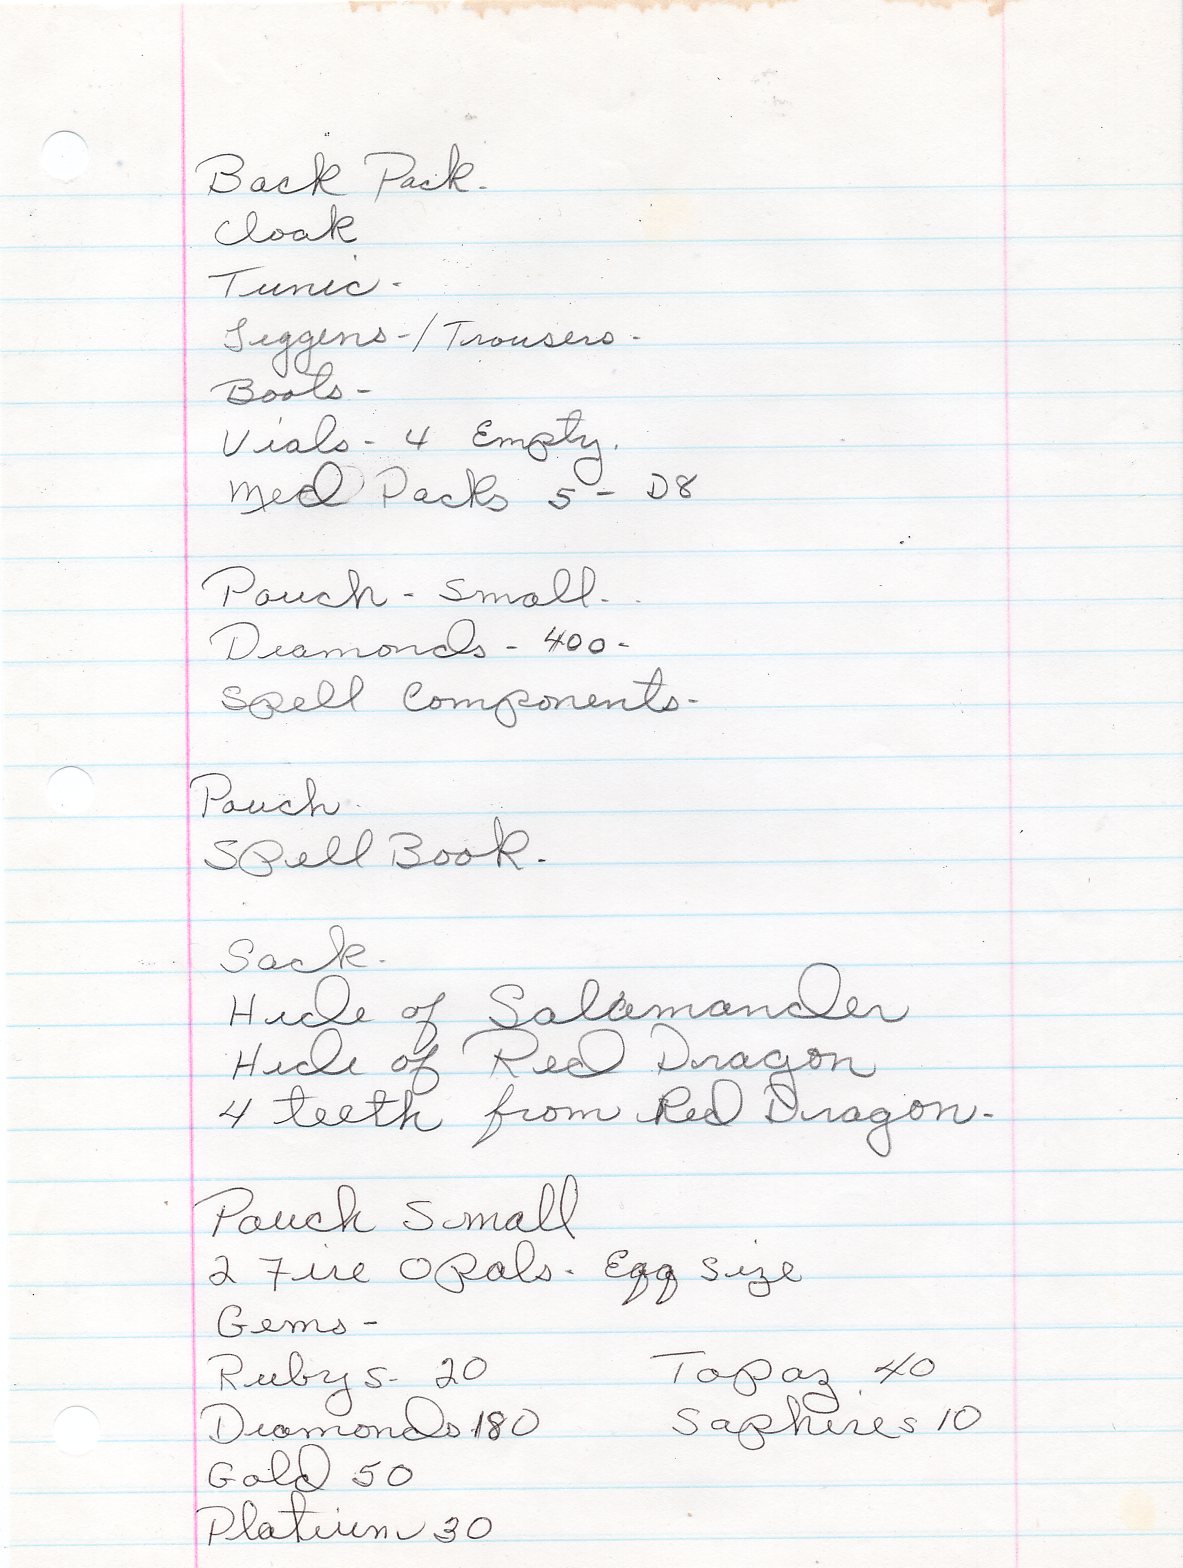 Back Pack.
Cloak
Tunic -
Leggens - / Trousers -
Boots -
Vials - 4 Empty.
Med Packs 5 - D8
Pouch - Small.
Diamonds - 400 -
Spell Components -
Pouch
Spell Book.
Sack.
Hide of Salamander
Hide of Red Dragon
4 teeth from Red Dragon -
Pouch Small
2 Fire Opals - Egg size
Gems -
Rubys - 20 Topaz 40
Diamonds 180 Saphires 10
Gold 50
Platium 30